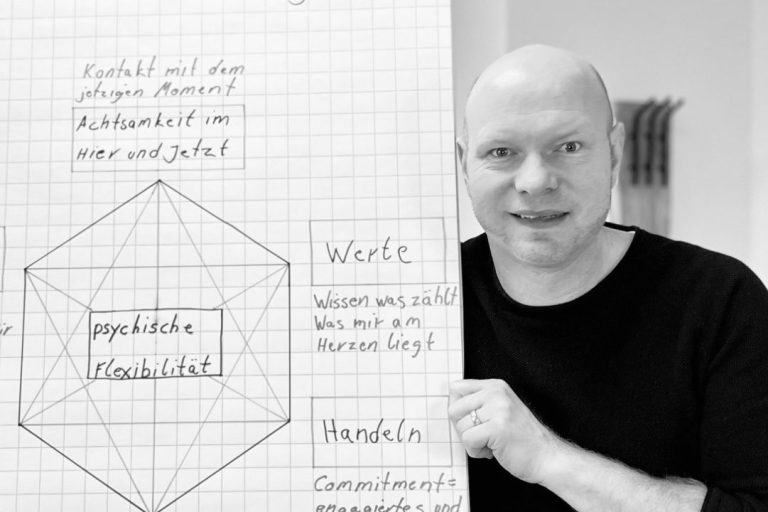 Kontakt mit dem
jetzigen Moment
Achtsamkeit im
Hier und Jetzt
Werte
Wissen was zählt
Was mir am
Herzen liegt
psychische
Flexibilität
Handeln
Commitment=
engagiertes und